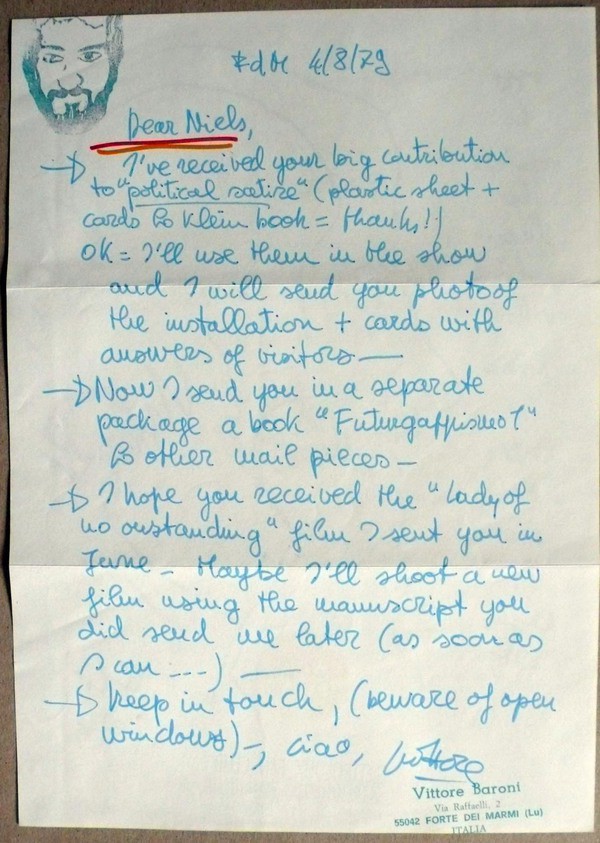 FdM 4/8/79
Dear Niels,
I've received your big contribution
to "political satire" (plastic sheet +
cards & Klein book = thanks!)
OK = I'll use them in the show
and I will send you photo of
the installation + cards with
answers of visitors —
Now I send you in a separate
package a book "Futurgappismo1"
& other mail pieces —
I hope you received the "Lady of
no oustanding" film I sent you in
June - Maybe I'll shoot a new
film using the manuscript you
did send me later (as soon as
I can ---) —
keep in touch, (beware of open
windows) -, ciao, Vittore
Vittore Baroni
Via Raffaelli, 2
55042 FORTE DEI MARMI (Lu)
ITALIA